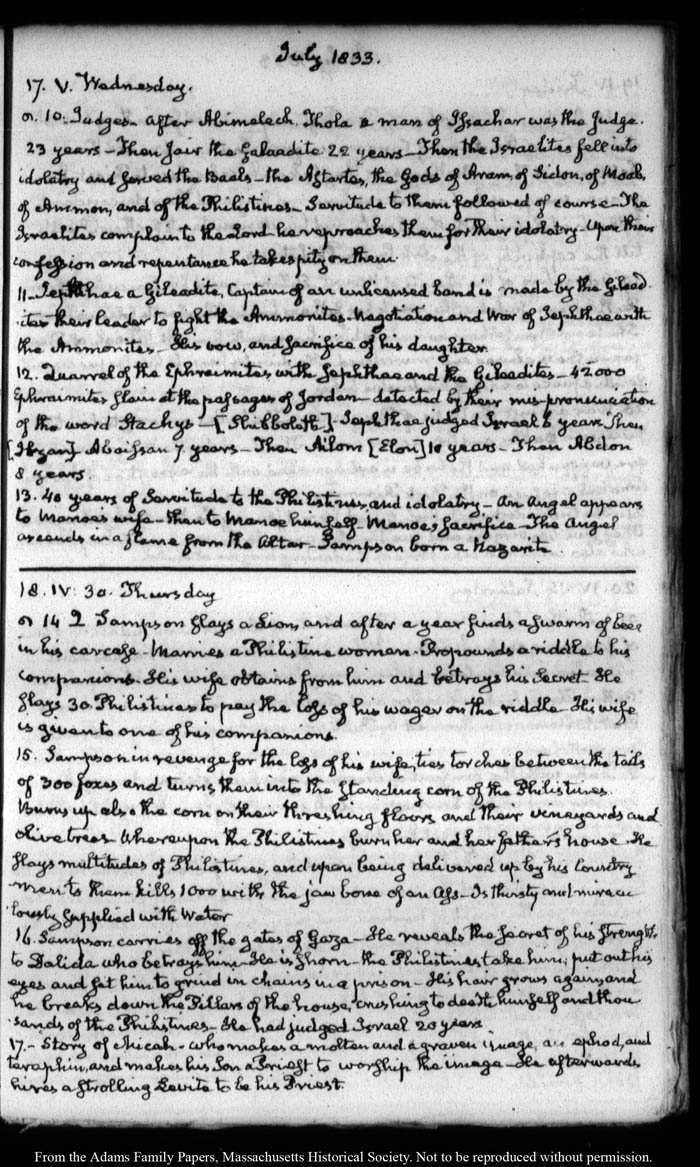 July 1833.
17. V. Wednesday.
10. Judges. After Abimelech. Thola a man of Issachar was the Judge.
23 years — Then Jair the Galaadite 22 years — Then the Israelites fell into
idolatry and served the Baals — the Astartes, the Gods of Aram, of Sidon, of Moab,
of Ammon, and of the Philistines — Servitude to them followed of course — The
Israelites complain to the Lord — he reproaches them for their idolatry — Upon their
confession and repentance he takes pity on them.
11 — Jephthae a Gileadite, Captain of an unlicensed band is made by the Gilead
ites their leader to fight the Ammonites — Negotiation and War of Jephthae with
the Ammonites — His vow, and sacrifice of his daughter.
12. Quarrel of the Ephraimites with Jephthae and the Gileadites — 42000
Ephraimites slain at the passages of Jordan — detected by their mis-pronunciation
of the word Stachys — [Shibboleth] — Jephthae judged Israel 6 years Then
[Ibzan] Abaissan 7. years — Then Ailom [Elon] 10 years — Then Abdon
8 years.
13. 40 years of Servitude to the Philistines, and idolatry — An Angel appears
to Manoe's wife — then to Manoe himself. Manoe's sacrifice — The Angel
ascends in a flame from the Altar — Sampson born a Nazarite.
18. IV: 30. Thursday
14 Sampson slays a Lion, and after a year finds a swarm of bees
in his carcase — Marries a Philistine woman. Propounds a riddle to his
companions. His wife obtains from him and betrays his secret. He
slays 30. Philistines to pay the loss of his wager on the riddle. His wife
is given to one of his companions.
15. Sampson in revenge for the loss of his wife, ties torches between the tails
of 300 foxes and turns them into the standing corn of the Philistines.
Burns up also the corn on their threshing floors and their vineyards and
olive trees — Whereupon the Philistines burn her and her father's house. He
slays multitudes of Philistines, and upon being delivered up by his Country
men to them kills 1000 with the jaw bone of an Ass — Is thirsty and miracu
lously supplied with water
16. Sampson carries off the gates of Gaza — He reveals the secret of his strength
to Dalida who betrays him. He is shorn — the Philistines take him, put out his
eyes and set him to grind in chains in a prison — His hair grows again, and
he breaks down the Pillars of the house, crushing to death himself and thou
sands of the Philistines — He had judged Israel 20 years.
17. — Story of Micah — who makes a molten and a graven image, an ephod, and
teraphim, and makes his Son a Priest to worship the image — He afterwards
hires a strolling Levite to be his Priest.
From the Adams Family Papers, Massachusetts Historical Society. Not to be reproduced without permission.